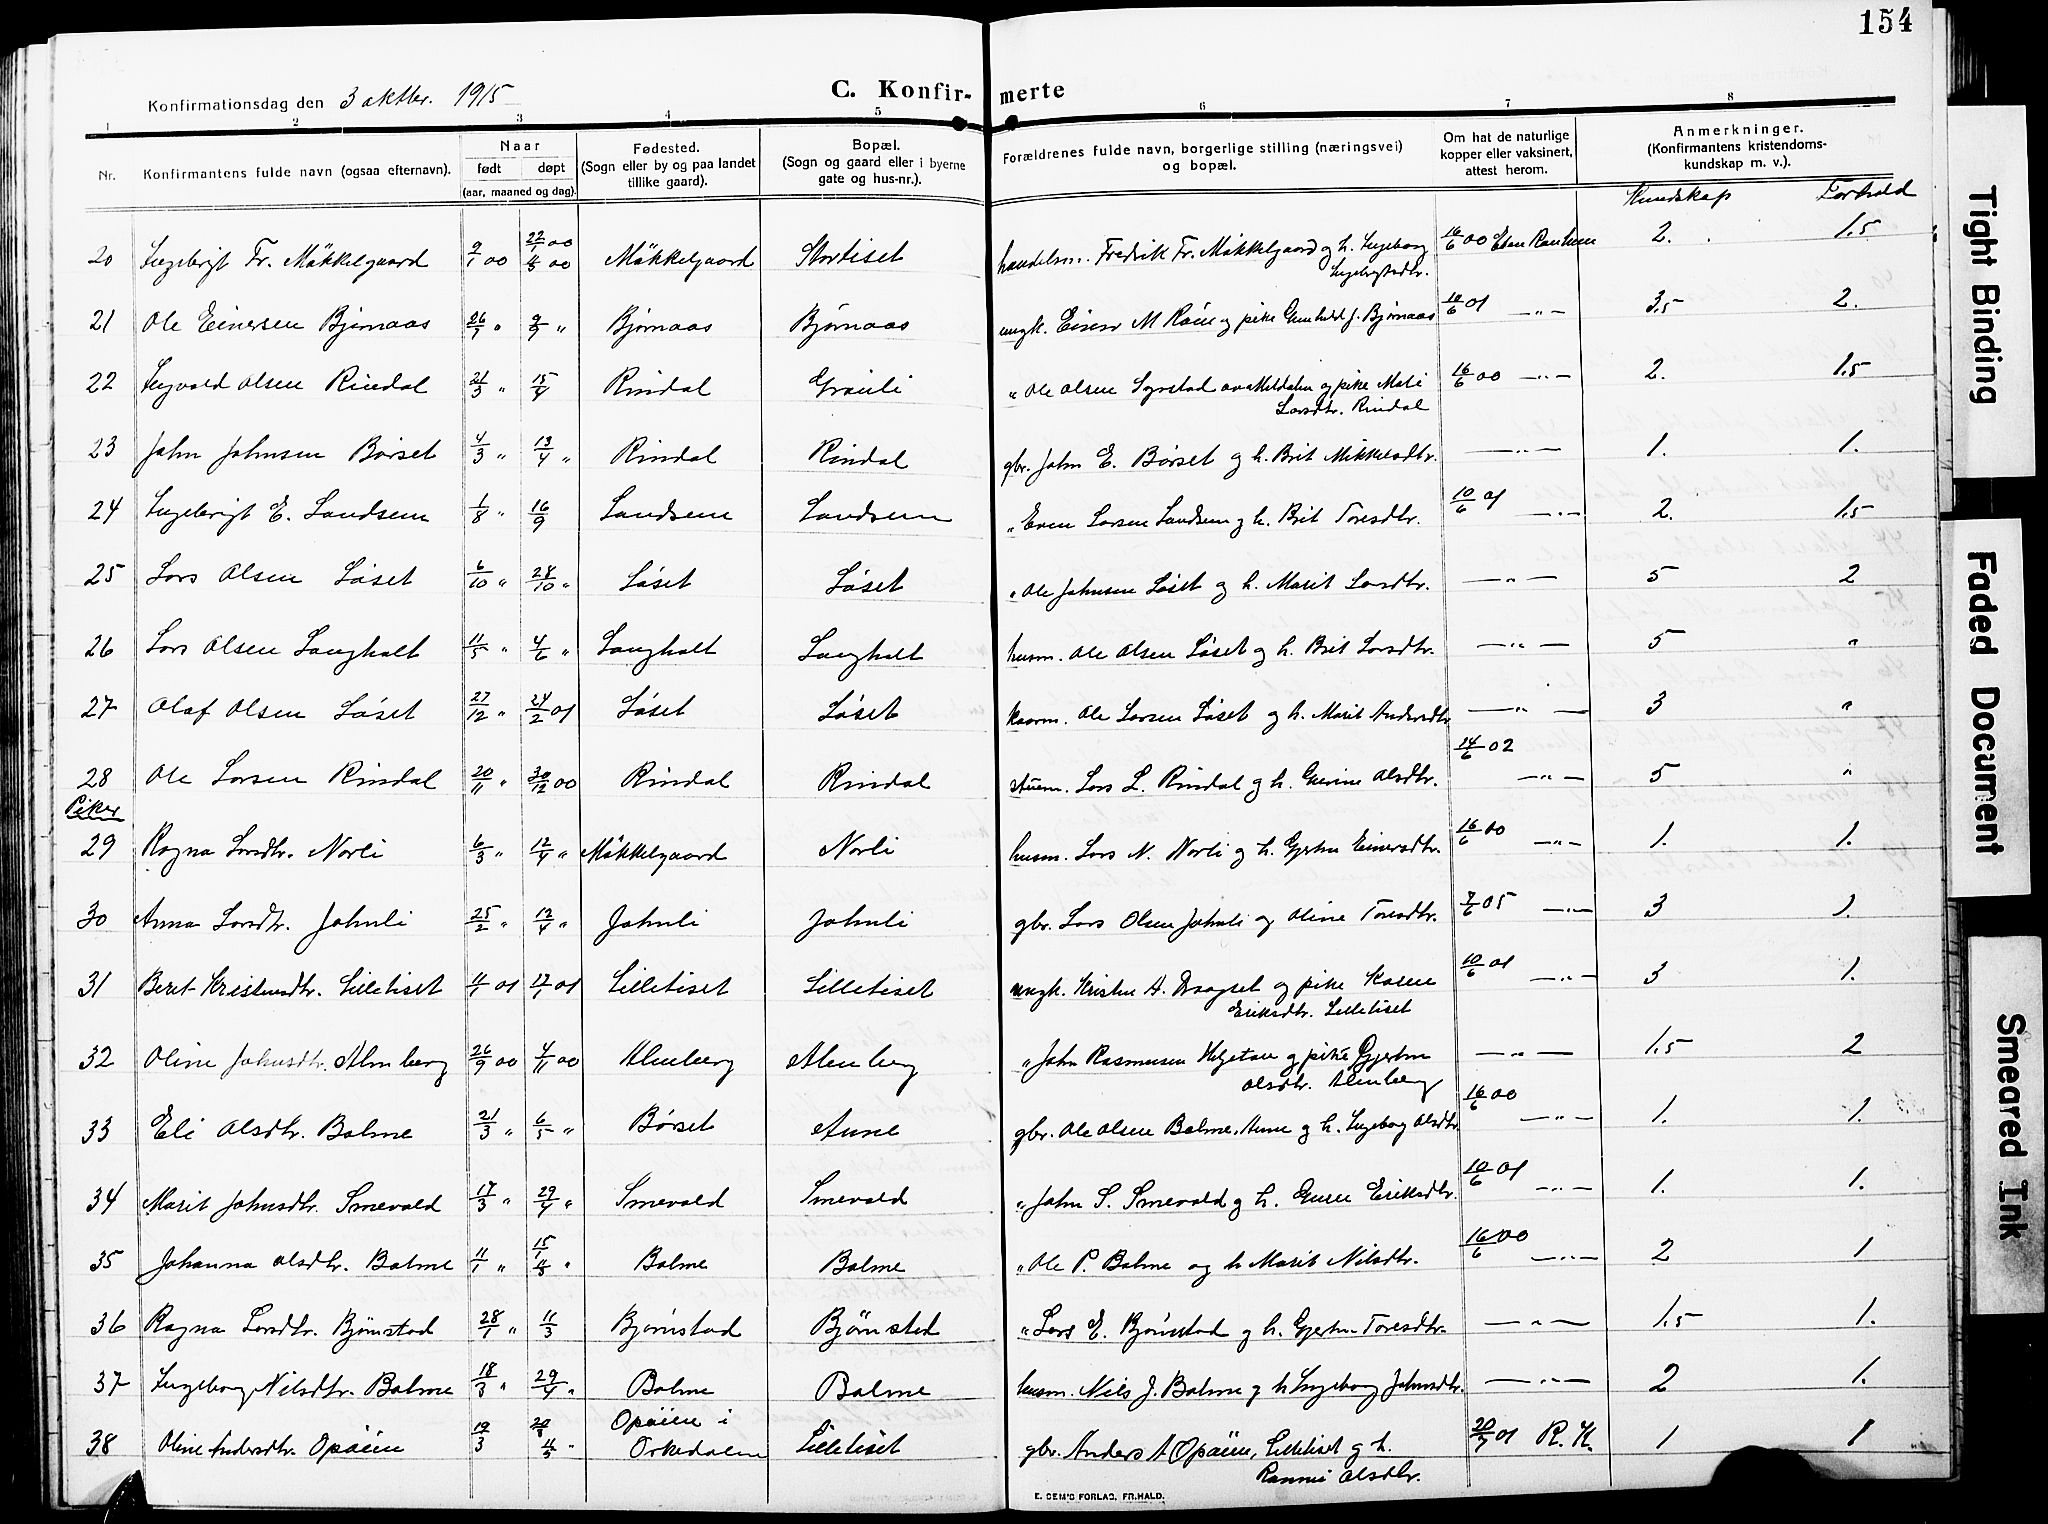 154
Konfirmationsdag den 3 oktbr. 1915
C. Konfir- merte
1 2 3 4 5 6 7 8
Nr.
Konfirmantens fulde navn (ogsaa efternavn).
Naar
født døpt
(aar, maaned og dag).
Fødested.
(Sogn eller by og paa landet
tillike gaard).
Bopæl.
(Sogn og gaard eller i byerne
gate og hus-nr.).
Forældrenes fulde navn, borgerlige stilling (næringsvei)
og bopæl.
Om hat de naturlige
kopper eller vaksinert,
attest herom.
Anmerkninger.
(Konfirmantens kristendoms-
kundskap m. v.).
Kundskap Forhold
20 Ingebrigt Fr. Mökkelgaard 9/1 00 22/1 00 4/3 00 Mökkelgaard Stortiset handelsm. Fredrik Fr. Mökkelgaard og h. Ingeborg 16/6 00 2. 1.5
Ingebrigtsdtr.
21 Ole Einersen Bjørnaas 26/7 " 9/9 " Bjørnaas Bjørnaas ungk. Einer M Röen og pike Gunhild J. Bjørnaas 10/6 01 — " — 3.5 2.
22 Ingvald Olsen Rindal 21/3 " 15/4 Rindal Gråuli " Ole Olsen Syrstad av Meldalen og pike Mali 16/6 00 — " — 2. 1.5
Larsdtr. Rindal
23 John Johnsen Börset 4/3 " 13/4 " Rindal Rindal gbr. John E. Börset og h. Brit Mikkelsdtr. — " — 1. 1.
24 Ingebrigt E. Landsem 1/8 " 16/9 Landsem Landsem " Even Larsen Landsem og h. Brit Toresdtr. 10/6 01 — " — 2. 1.5
25 Lars Olsen Löset 6/10 " 28/10 " Löset Löset " Ole Johnsen Löset og h. Marit Larsdtr. — " — 5 2
26 Lars Olsen Langhalt 11/5 " 4/6 " Langhalt Langhalt husm. Ole Olsen Löset og h. Brit Larsdtr. — " — 5 "
27 Olaf Olsen Löset 27/12 " 24/2 01 Löset Löset kaarm. Ole Larsen Löset og h. Marit Andersdtr — " — 3 "
28 Ole Larsen Rindal 20/11 " 30/12 00 Rindal Rindal stuem. Lars L. Rindal og h. Gurine Olsdtr. 14/6 02 — " — 5 "
Piker
29 Ragna Larsdtr. Norli 6/3 " 12/4 " Mökkelgaard Norli husm. Lars N. Norli og h. Gjertru Einersdtr. 16/6 00 — " — 1. 1.
30 Anna Larsdtr. Johnli 25/2 " 12/4 " Johnli Johnli gbr. Lars Olsen Johnli og Oline Toresdtr. 7/6 05 — " — 3 1.
31 Beret Kristensdtr. Lilletiset 11/1 01 17/1 01 Lilletiset Lilletiset ungk. Kristen A. Dragset og pike Karen 10/6 01 — " — 3 1.
Eriksdtr. Lilletiset
32 Oline Johnsdtr. Almberg 26/9 00 4/11 00 Almberg Almberg " John Rasmusen Helgetun og pike Gjertru — " — 1.5 2
Olsdtr. Almberg
33 Eli Olsdtr. Bolme 21/3 " 6/5 " Börset Aune gbr. Ole Olsen Bolme, Aune og h. Ingeborg Olsdtr. 16/6 00 — " — 1. 1.
34 Marit Johnsdtr. Smevold 17/3 " 29/4 " Smevold Smevold " John S. Smevold og h. Guru Eriksdtr. 10/6 01 — " — 1. 1.
35 Johanna Olsdtr. Bolme 11/1 " 15/1 4/3 " Bolme Bolme " Ole P. Bolme og h Marit Nilsdtr. 16/6 00 — " — 2 1
36 Ragna Larsdtr. Bjørnstad 28/1 " 11/3 Bjørnstad Bjørnstad " Lars E. Bjørnstad og h. Gjertru Toresdtr. — " — 1.5 1.
37 Ingeborg Nilsdtr. Bolme 18/3 " 29/4 " Bolme Bolme husm. Nils J. Bolme og h Ingeborg Johnsdtr. — " — 2 1.
38 Oline Andersdtr. Opöien 19/3 Opöien i Orkedalen Lilletiset gbr. Anders A Opöien, Lilletiset og h. 20/7 01 R. K. 1 1
Rannei Olsdtr.
E. SEM'S FORLAG, FR.HALD.
Tight Binding
Faded Document
Smeared Ink